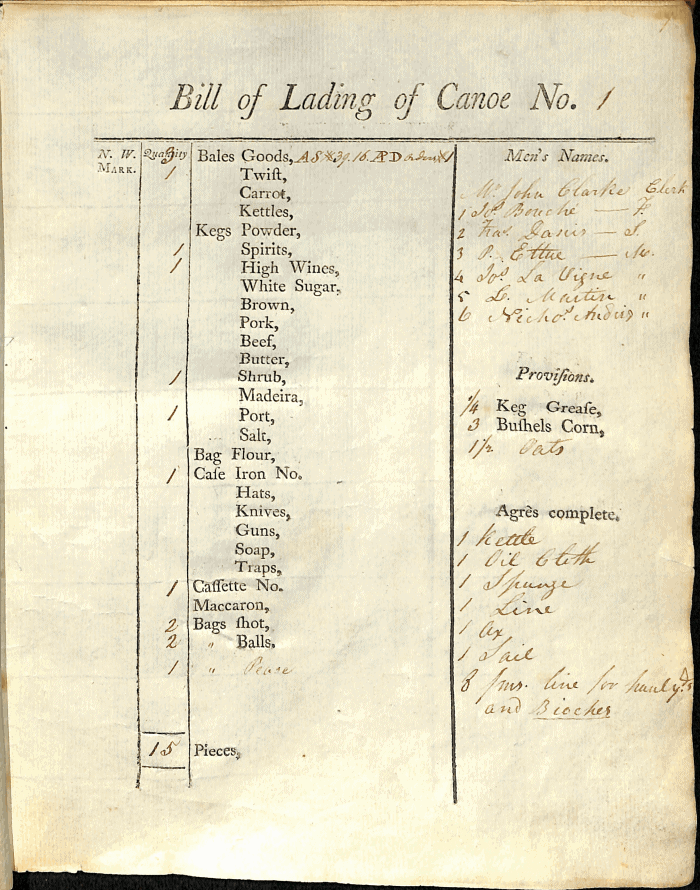 Bill of Lading of Canoe No. 1
N. W. MARK.
Quantity
3 Bales Goods, A S 39. 16. D 1
1 Twiſt,
Carrot,
Kettles,
Kegs Powder,
1 Spirits,
1 High Wines,
White Sugar,
Brown,
Pork,
Beef,
Butter,
1 Shrub,
Madeira,
1 Port,
Salt,
Bag Flour,
1 Caſe Iron No.
Hats,
Knives,
Guns,
Soap,
Traps,
1 Caſſette No.
Maccaron,
2 Bags ſhot,
2 " Balls,
1 " Pease
15 Pieces,
Men's Names.
Mr John Clarke Clerk
1 Jos. Bouché — F.
2 Fras. Danis — S.
3 P. Ettue — M.
4 Jos La Vigne "
5 L. Martin "
6 Nichos "
Proviſions.
1/4 Keg Greaſe,
3 Buſhels Corn,
1 1/2 Oats
Agrès complete.
1 Kettle
1 Oil Cloth
1 Spunge
1 Line
1 Ax
1 Sail
8 fms. line for
and